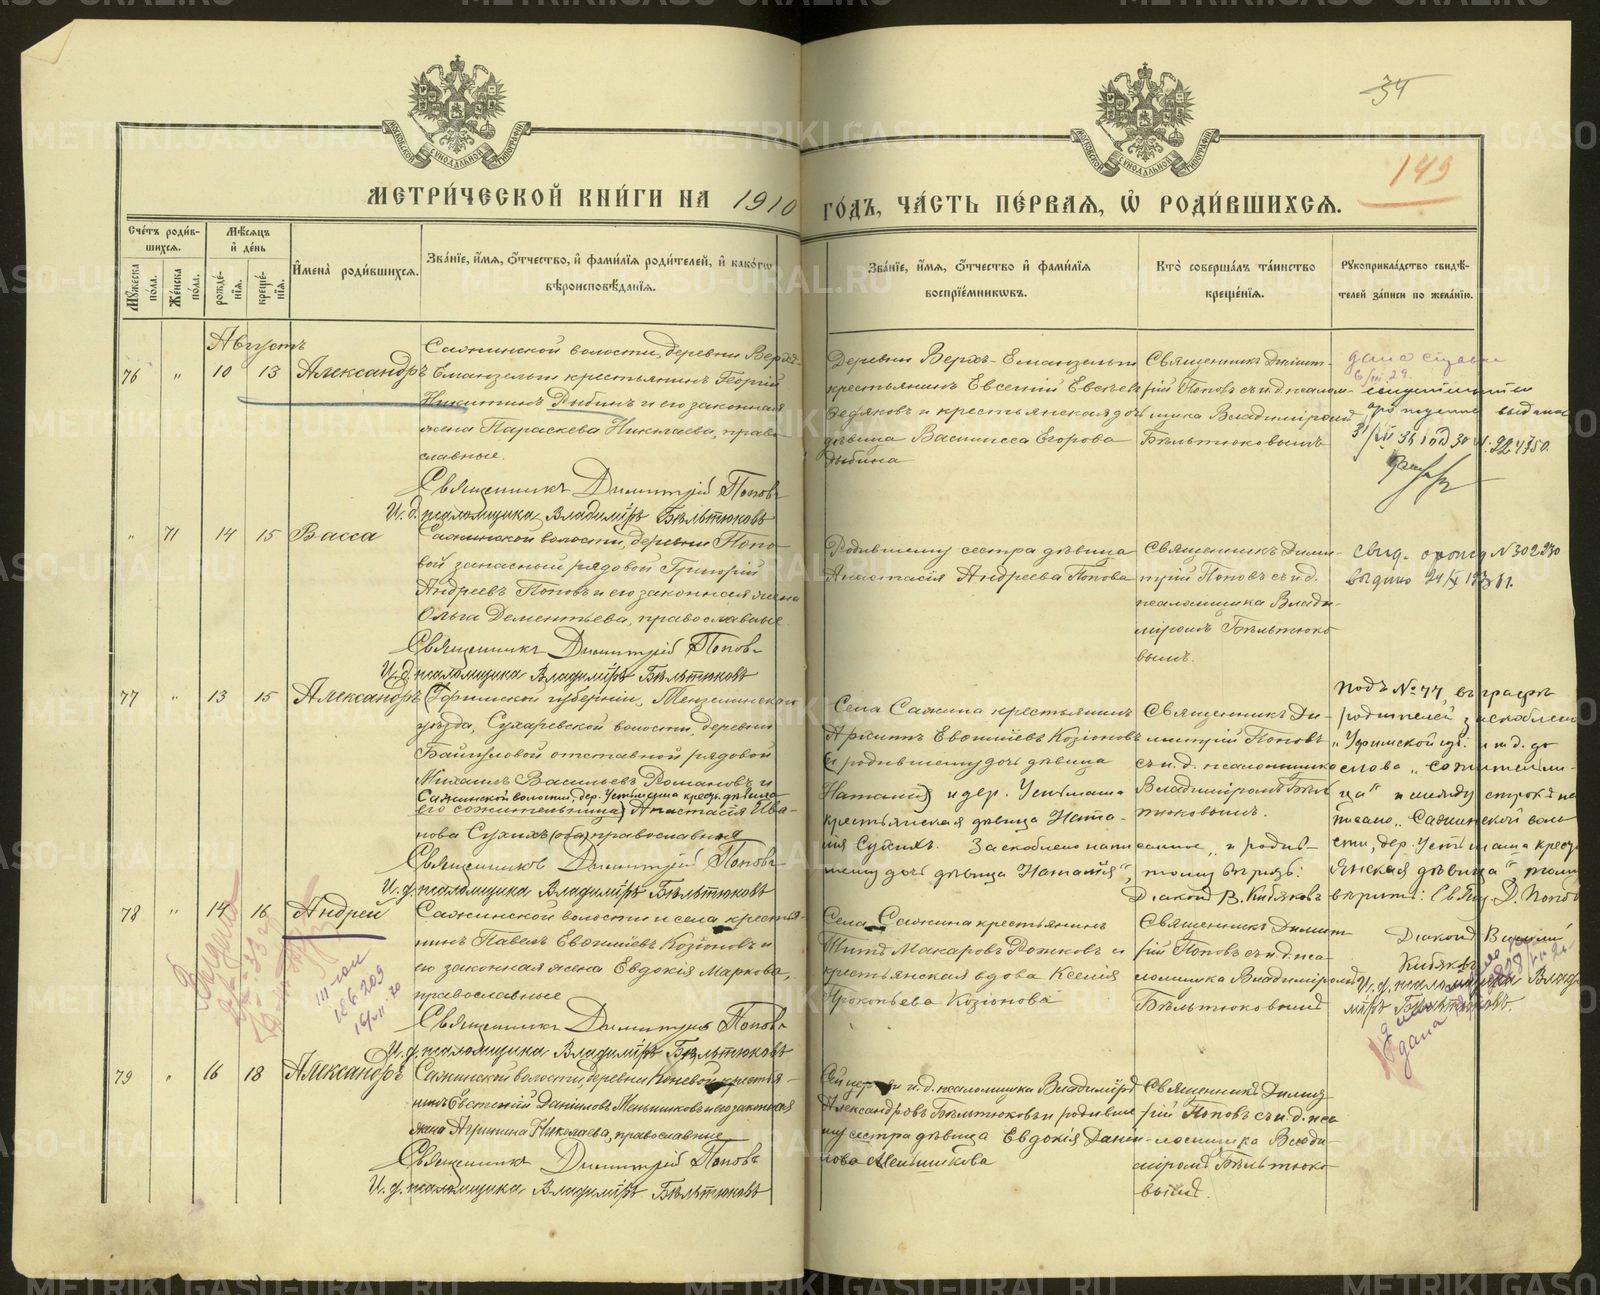 34
149
МОСКОВСКОЙ СѴНОДАЛЬНОЙ ТИПОГРАФІИ
МОСКОВСКОЙ СѴНОДАЛЬНОЙ ТИПОГРАФІИ
МЕТРИ́ЧЕСКОЙ КНИ́ГИ НА 1910
ГО́ДЪ, ЧА́СТЬ ПЕ́РВАЯ, Ѡ҆ РОДИ́ВШИХСЯ.
Сче́тъ роди́вшихся.
Му́жеска по́ла.
Же́нска по́ла.
Мѣ́сяцъ и҆ де́нь
рожде́нїя.
креще́нїя.
И҆мена̀ роди́вшихся.
Зва́нїе, и҆́мя, ѻ҆́тчество, и҆ фами́лїя роди́телей, и҆ како́гѡ
вѣроисповѣ́данїя.
Зва́нїе, и҆́мя, ѻ҆́тчество и҆ фами́лїя
воспрїе́мникѡвъ.
Кто̀ соверша́лъ та́инство
креще́нїя.
Рꙋкоприкла́дство свидѣ́-
телей за́писи по жела́нїю.
Августъ
76 " 10 13 Александръ
Сажинской волости, деревни Верхъ-
Еманзельги крестьянинъ Георгій
Никитинъ Рыбинъ и его законная
жена Параскева Николаева, право-
славные.
Священникъ Димитрій Поповъ
И. д. псаломщика Владиміръ Бѣльтюковъ
Деревни Верхъ-Еманзельги
крестьянинъ Евсегній Евсѣев
Федяковъ и крестьянская дочь
дѣвица Васписса Егорова
Рыбина
Священникъ Димит-
рій Поповъ съ и.д. псалом-
щика Владиміромъ
Бѣльтюковымъ
дана справка
6/III 29.
"	71	14	15	Васса
Сажинской волости, деревни Попо-
вой запасный рядовой Григорій
Андреевъ Поповъ и его законная жена
Ольга Дементьева, православные.
Священникъ Димитрій Поповъ
И. д. псаломщика Владиміръ Бѣльтюковъ
Родившему сестра дѣвица
Анастасія Андреева Попова
Священникъ Дими-
трій Поповъ съ и.д.
псаломщика Влади-
міромъ Бѣльтюко-
вымъ.
77 " 13 15 Александръ
Уфимской губерніи, Мензелинского
уѣзда, Сухаревской волости, деревни
отставной рядовой
Михаилъ Васильевъ Романовъ и
Сажинской волости, дер. Устьмаша крест. дѣвица
(его сожительница) Анастасія Ива-
нова Сухихъ (оба) православныя
Священникъ Димитрій Поповъ
И. д. псаломщика Владиміръ Бѣльтюковъ
Села Сажина крестьянинъ
Евѳиміевъ Козіоновъ
и родившему дочь дѣвица
Наталія) и дер. Устьмаша
крестьянская дѣвица Ната-
лія Сухихъ. Заскоблено напи-
санное „и родив-
шему дочь дѣвица Наталія", тому вѣрятъ:
Діаконъ В. Кибяковъ
Священникъ Ди-
митрій Поповъ
съ и.д. псаломщика
Владиміромъ Бѣль-
тюковымъ.
Подъ № 77, въ графѣ
родителей заскоблено
„Уфимской губ. и т.д. до
слова „сожительни-
ца" и между строкъ на-
писано „Сажинской воло-
сти, дер. Устьмаша кресть-
янская дѣвица", тому
вѣрить: Свящ. Д. Поповъ
Діаконъ
Кибяковъ
И. д. псаломщика Влади-
міръ Бѣльтюковъ.
78 " 14 16 Андрей
Сажинской волости и села крестья-
нинъ Павелъ Евѳиміевъ Козіоновъ и
его законная жена Евдокія Маркова,
православные
Священникъ Димитрій Поповъ
И. д. псаломщика Владиміръ Бѣльтюковъ
Села Сажина крестьянинъ
Титъ Макаровъ и
крестьянская вдова Ксенія
Прокопьева Козіонова
Священникъ Димит-
рій Поповъ съ и.д. пса-
ломщика Владиміромъ
Бѣльтюковымъ
79 " 16 18 Александръ
Сажинской волости, деревни Коневой крестья-
нинъ Евгеній Даниловъ Меньшиковъ и его законная
жена Агрипина Николаева, православные
Священникъ Димитрій Поповъ
И. д. псаломщика Владиміръ Бѣльтюковъ
и.д. псаломщика Владиміръ
Александровъ Бѣльтюковъ и родивше-
му сестра дѣвица Евдокія Дани-
лова Меньшикова
Священникъ Димит-
рій Поповъ съ и.д. пса-
ломщика Влади-
міромъ Бѣльтюко-
вымъ.
METRIKI.GASO-URAL.RU